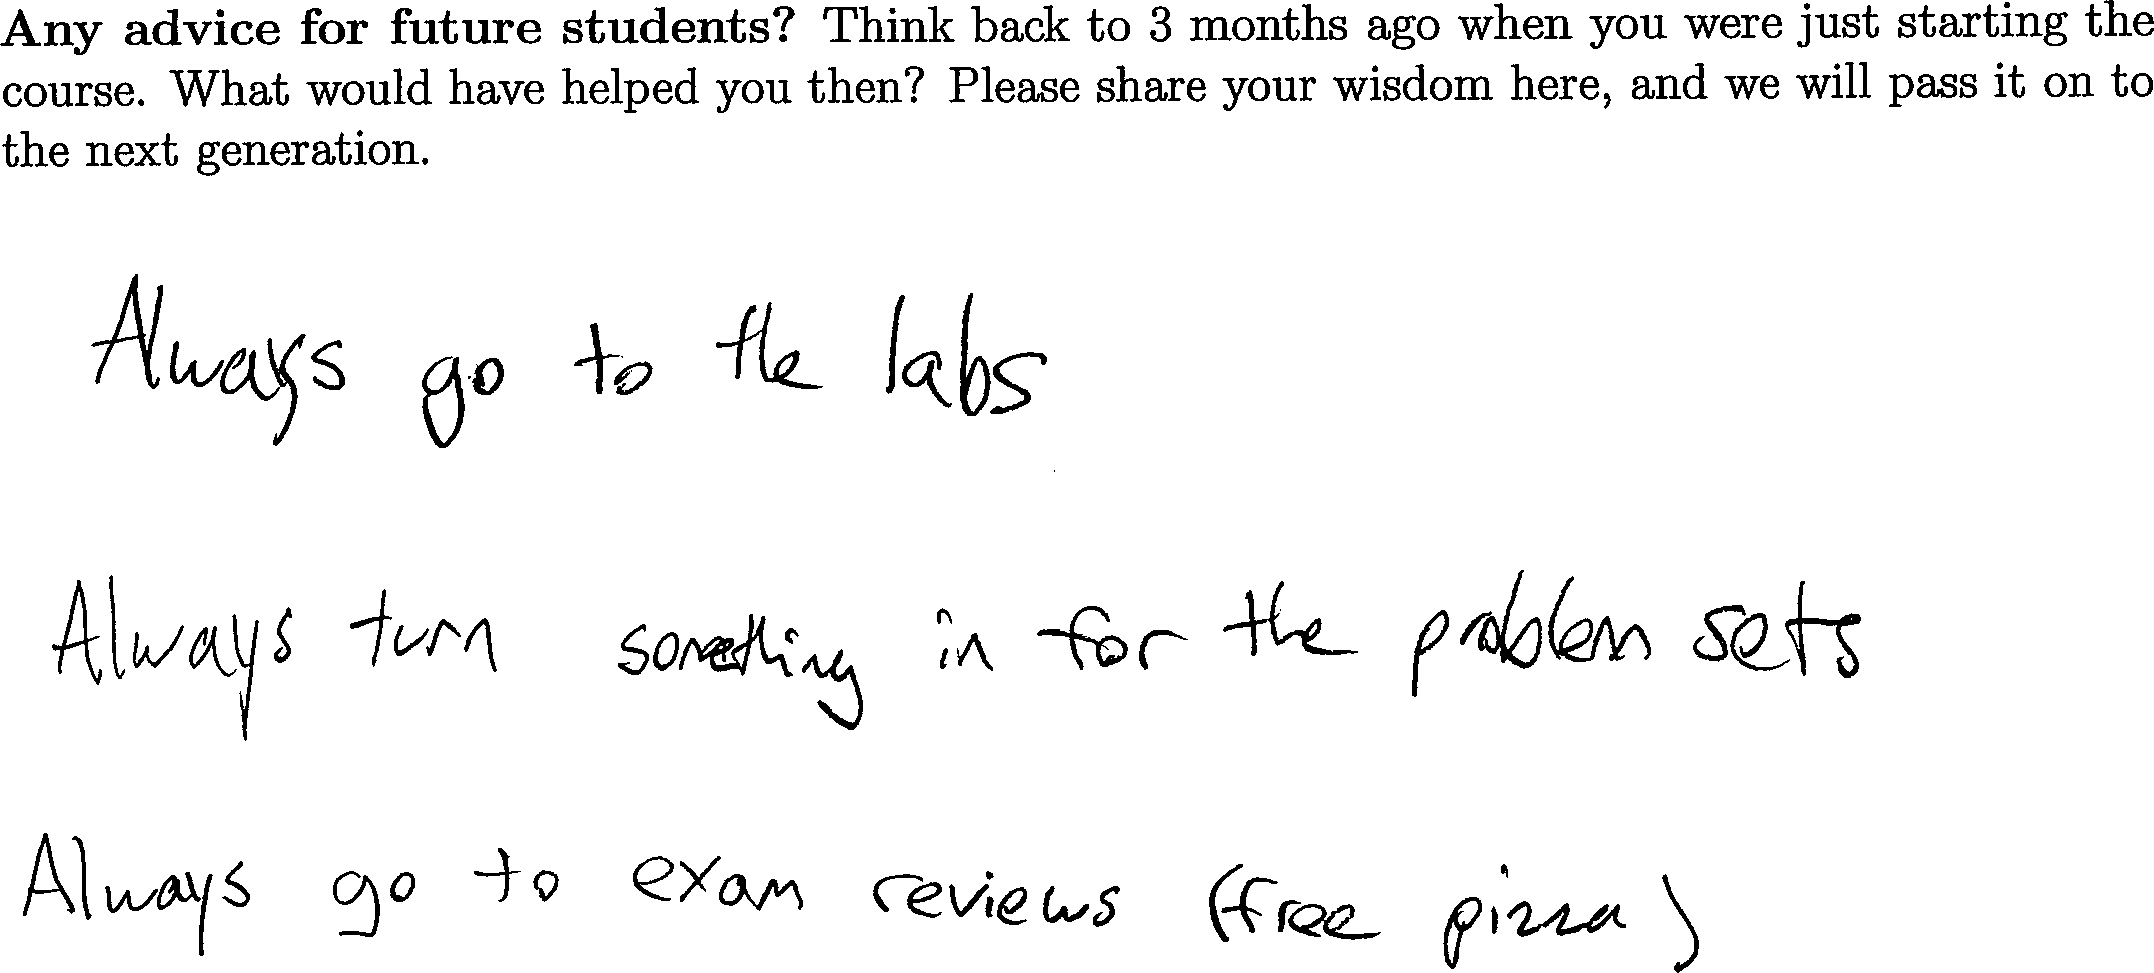 Any advice for future students? Think back to 3 months ago when you were just starting the
course. What would have helped you then? Please share your wisdom here, and we will pass it on to
the next generation.
Always go to the labs
Always turn something in for the problem sets
Always go to exam reviews (free pizza)